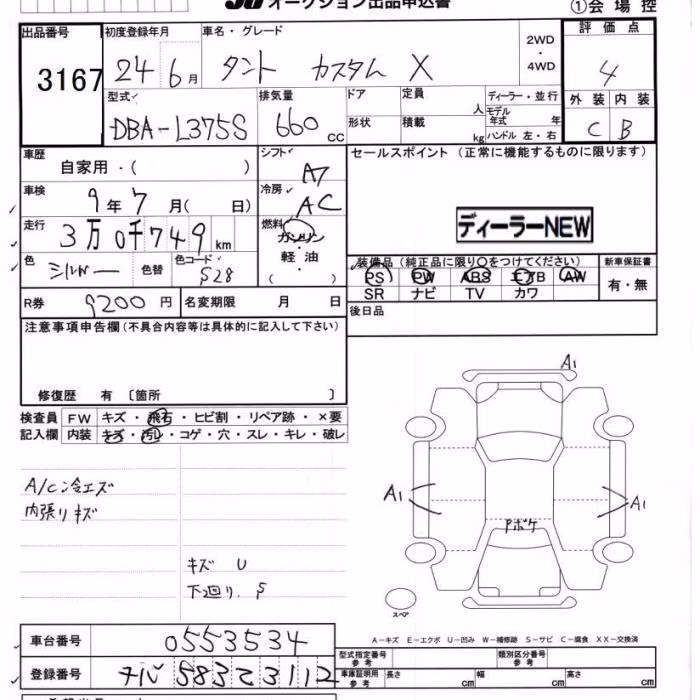 オークション出品申込書
①会場控
出品番号
3167
初度登録年月
24年6月
車名・グレード
タント カスタム X
2WD
・
4WD
評価点
4
型式
DBA-L375S
排気量
660 cc
ドア
定員
人
形状
積載
kg
ディーラー・並行
モデル年式 年
ハンドル 左・右
外装 内装
C B
車歴
自家用・( )
シフト
A7
セールスポイント (正常に機能するものに限ります)
ディーラーNEW
車検
9年7月( 日)
冷房
AC
走行
3万0千749km
燃料
ガソリン
軽油
( )
色
シルバー
色替
色コード
S28
装備品 (純正品に限り○をつけてください)
PS PW ABS エアB AW
SR ナビ TV カワ
新車保証書
有・無
R券
9200円
名変期限 月 日
後日品
注意事項申告欄(不具合内容等は具体的に記入して下さい)
修復歴 有 〔箇所 〕
検査員
記入欄
FW キズ・飛石・ヒビ割・リペア跡・×要
内装 キズ・汚レ・コゲ・穴・スレ・キレ・破レ
A/C冷エズ
内張リキズ
キズ U
下廻り. S
A1
A1
A1
Pボケ
スペア
A-キズ E-エクボ U-凹み W-補修跡 S-サビ C-腐食 XX-交換済
車台番号
0553534
登録番号
チバ 583 て 3112
型式指定番号
参考
類別区分番号
参考
車庫証明用
参考
長さ cm
幅 cm
高さ cm